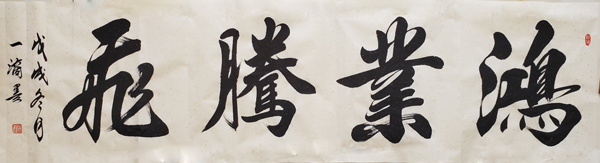 鴻業騰飛
戊戌冬月
一滴墨